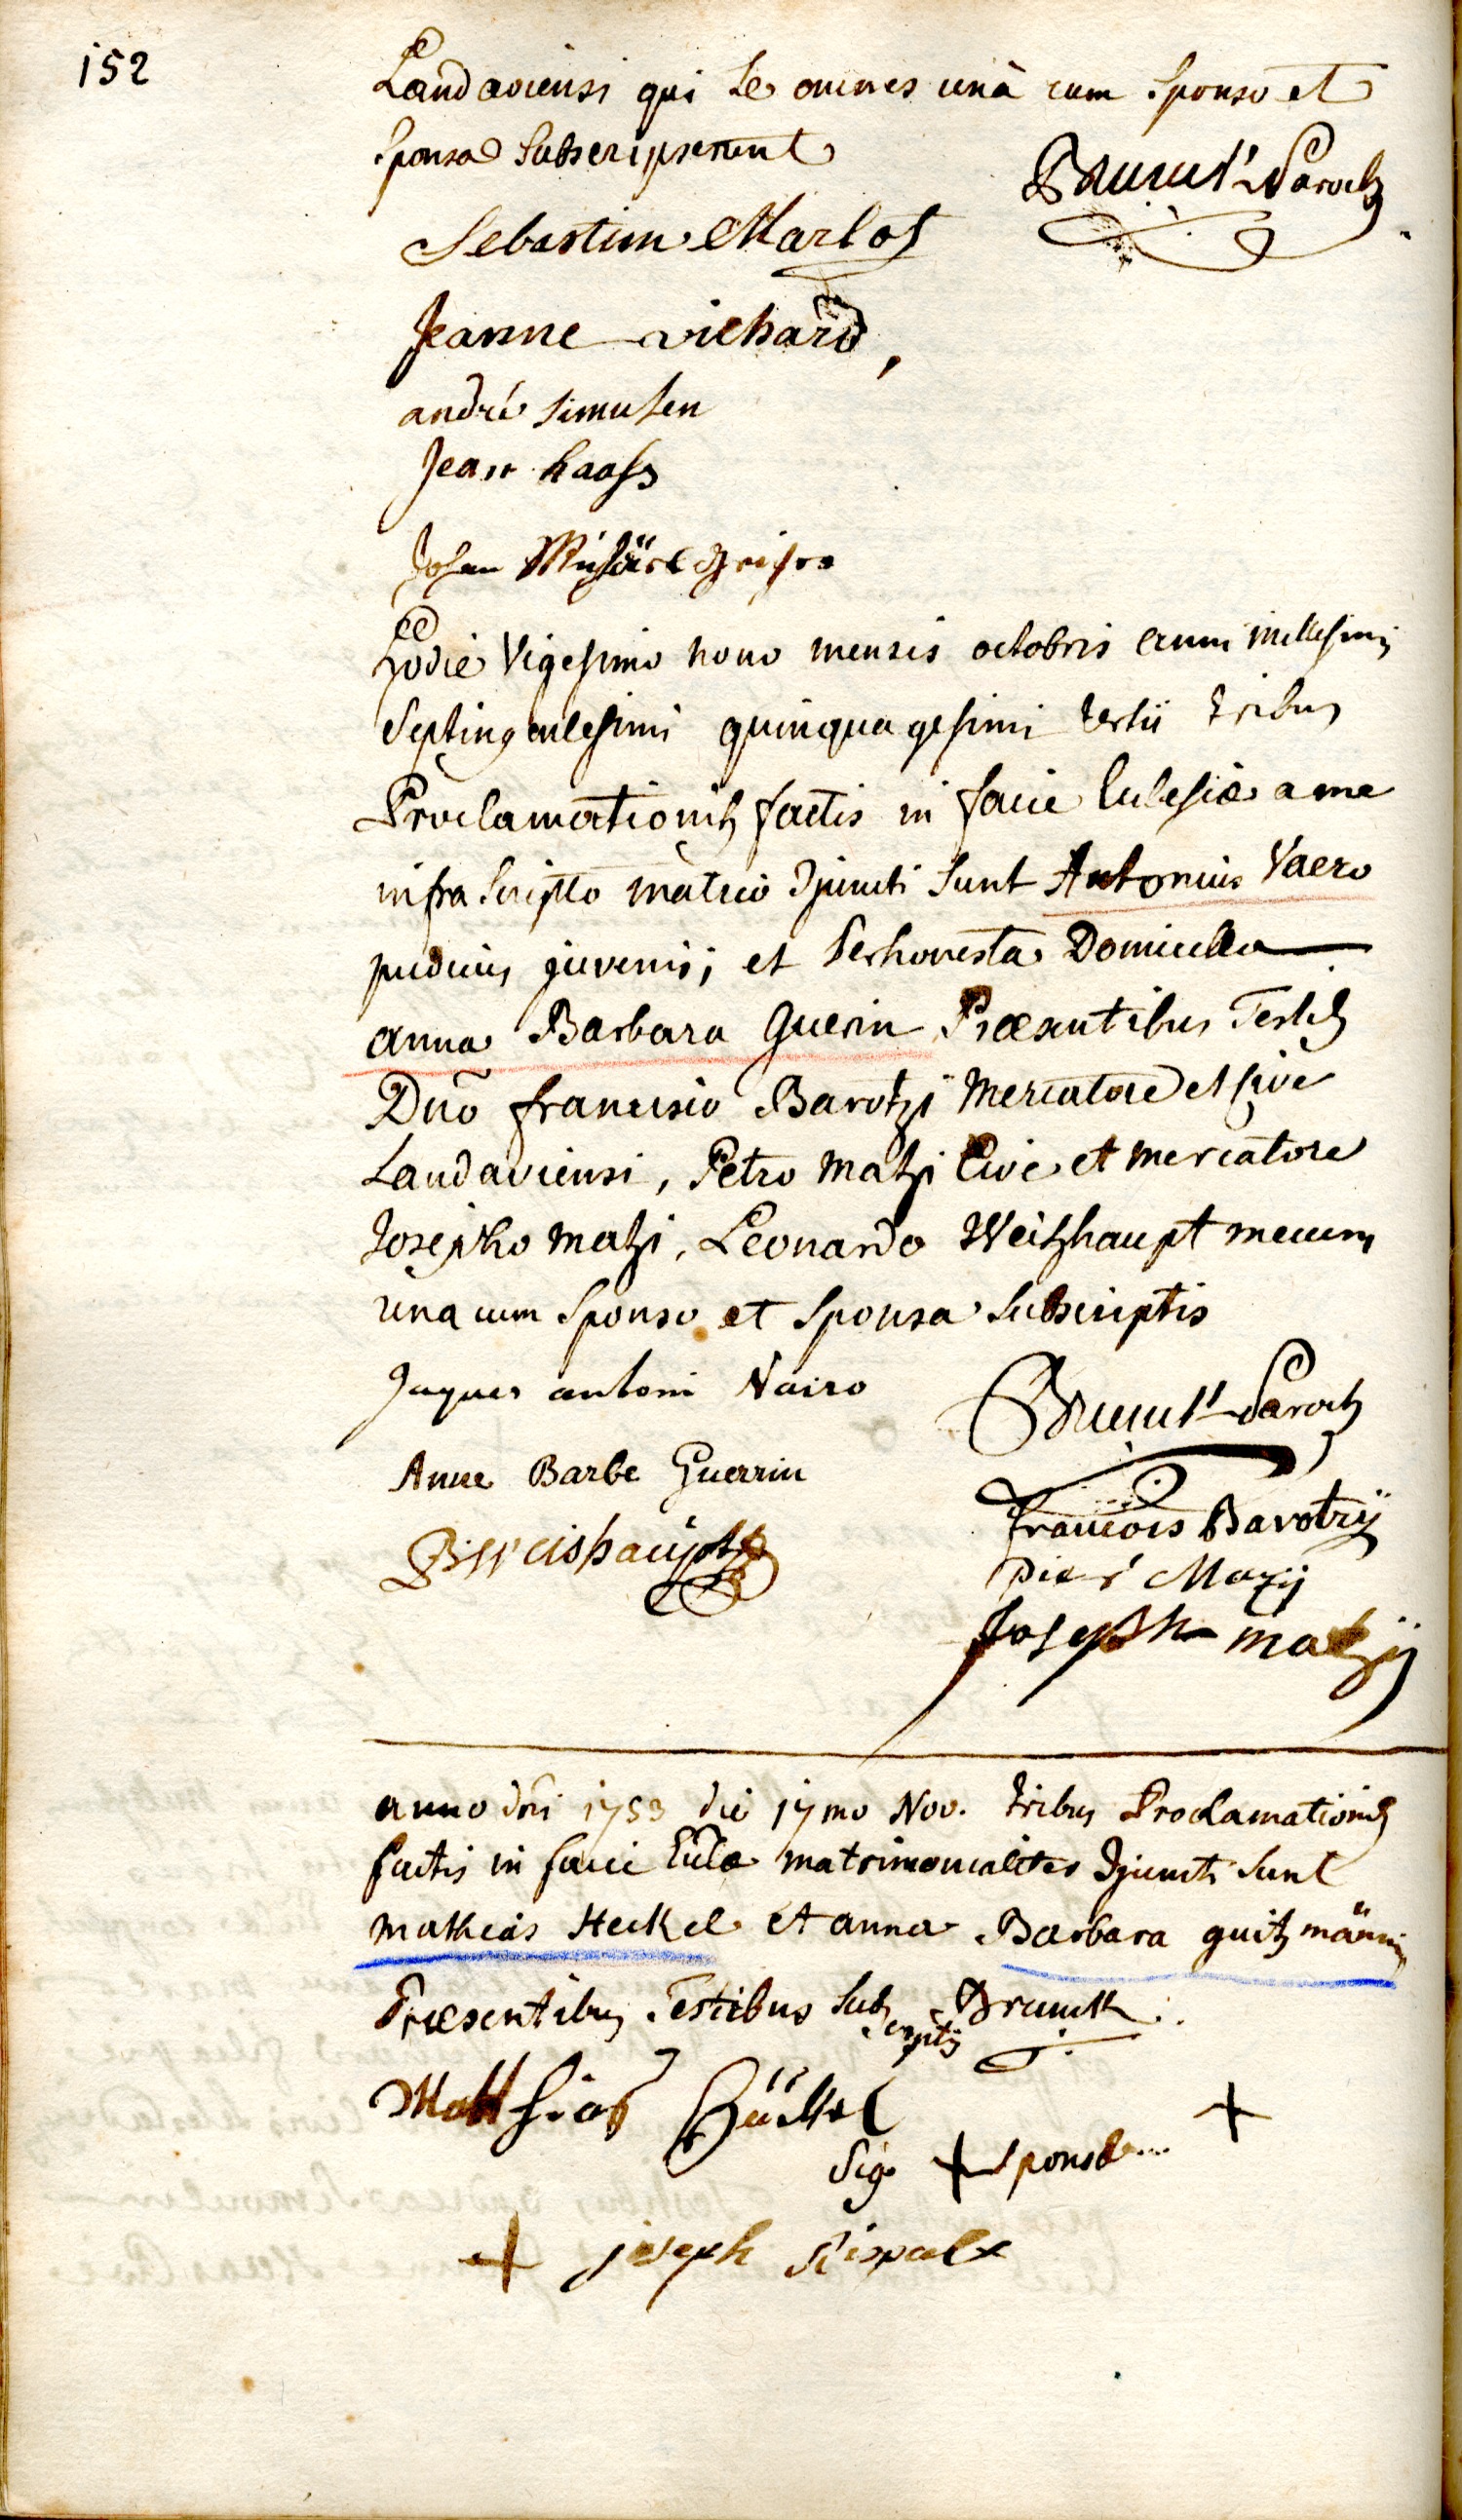 152
Landaviensi qui se omnes unà cum Sponso et
Sponsa Subscripserunt
Brunck Paroch
Sebastien Marlot
Jeanne vichard,
andré simulen
Jean haass
Johan
Hodie Vigesimo nono mensis octobris anni millesimi
Septingentesimi quinquagesimi tertii tribus
Proclamationib factis in facie Ecclesiæ a me
infra Scripto matrio Cjuncti Sunt Antonius Vaero
pudicus juvenis, et perhonesta Domicella
anna Barbara Guerin Præsentibus Testib
Dno francisco Barotzi Mercatore et cive
Landaviensi, Petro matzi Cive et mercatore
Josepho matzi, Leonardo Weitzhaupt mecum
una cum Sponso et Sponsa Subscriptis
Jaques antoni Vairo
Brunck Paroch
Anne Barbe Guerrin
francois Barotzÿ
Weishaupt
Pier Mazÿ
Joseph matzÿ
anno dni 1753 die 17mo Nov. tribus Proclamationib
factis in facie Eclæ matrimonialiter Cjuncti Sunt
mathias Heckel et anna Barbara guitzmännin
Præsentibus Testibus Subscriptis Brunck
Matthias Häckel
+
Sig + Sponsæ
+ joseph